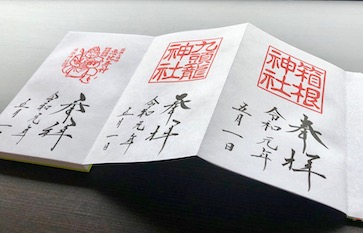 箱根
神社
奉拝
令和元年
五月一日
九頭龍
神社
奉拝
令和元年
五月一日
奉拝
令和元年
五月一日